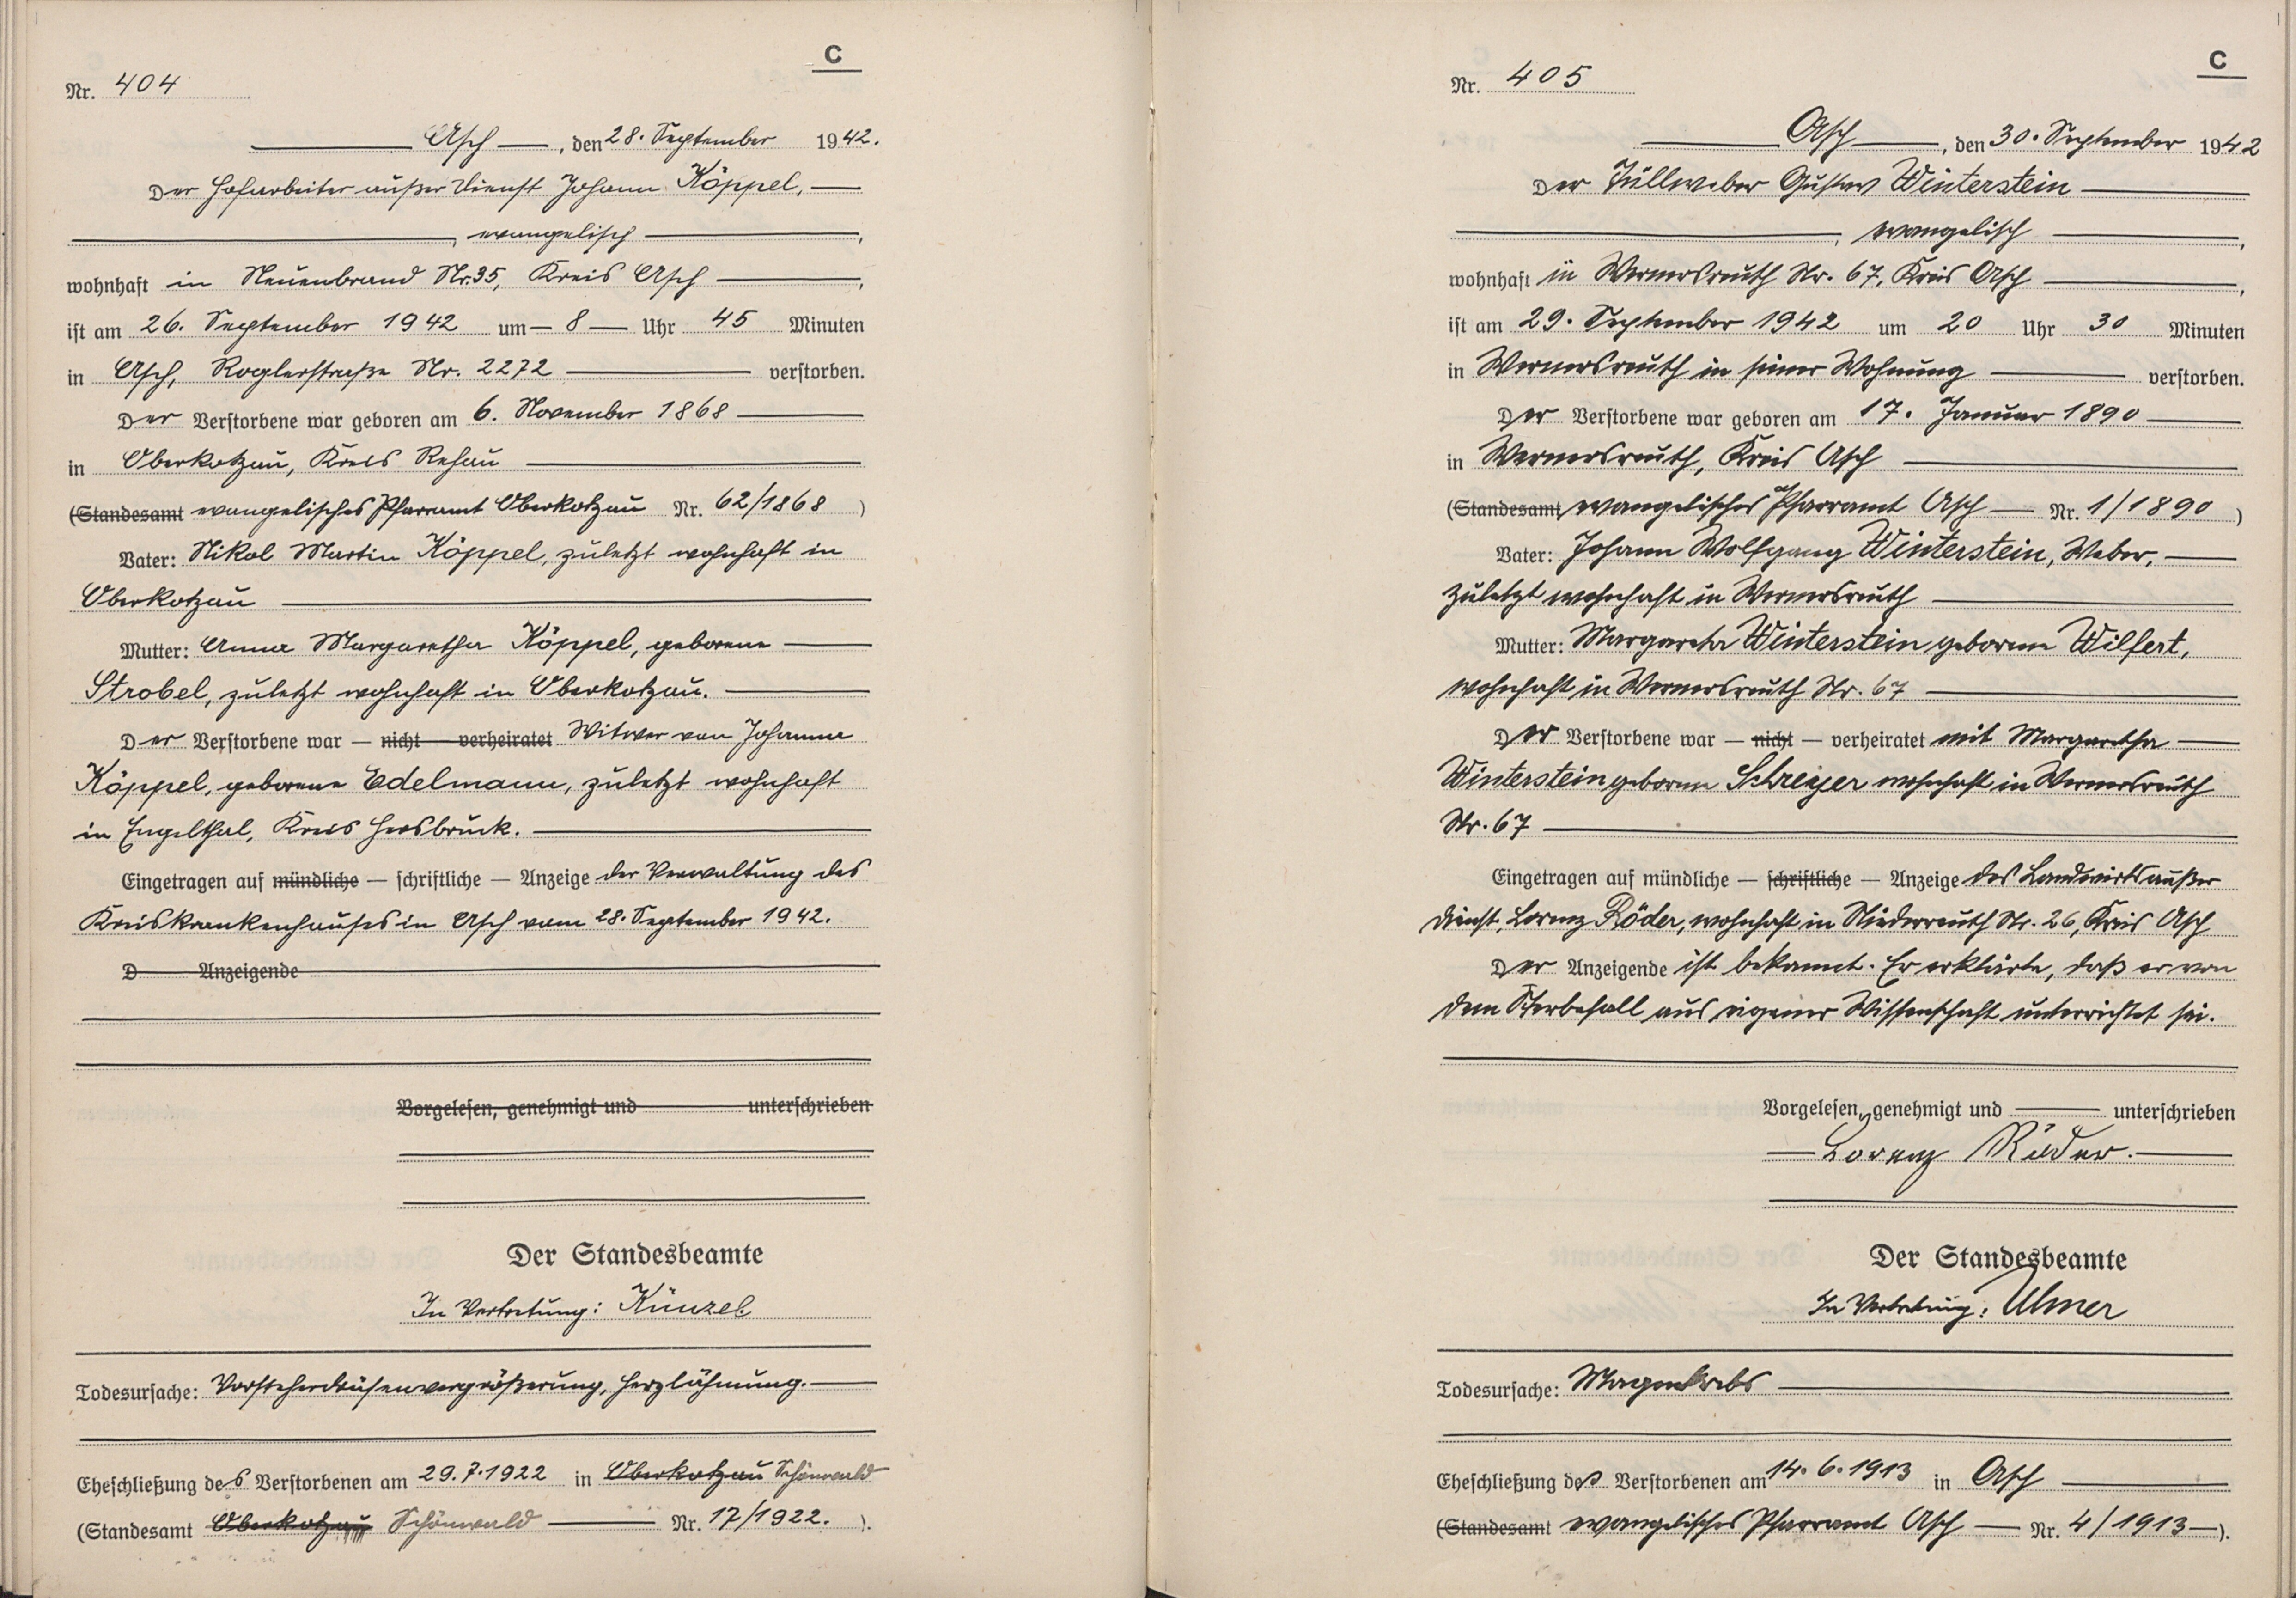 C
Nr. 404
Asch, den 28. September 1942.
Der Hofarbeiter außer Dienst Johann Köppel,
, evangelisch,
wohnhaft in Neuenbrand Nr. 35, Kreis Asch,
ist am 26. September 1942 um 8 Uhr 45 Minuten
in Asch, Roglerstraße Nr. 2272 verstorben.
Der Verstorbene war geboren am 6. November 1868
in Oberkotzau, Kreis Rehau
(Standesamt evangelisches Pfarramt Oberkotzau Nr. 62/1868)
Vater: Nikol Martin Köppel, zuletzt wohnhaft in
Oberkotzau
Mutter: Anna Margaretha Köppel, geborene
Strobel, zuletzt wohnhaft in Oberkotzau.
Der Verstorbene war — nicht — verheiratet Witwer von Johanna
Köppel, geborene Edelmann, zuletzt wohnhaft
in Engelthal, Kreis Hersbruck.
Eingetragen auf mündliche — schriftliche — Anzeige der Verwaltung des
Kreiskrankenhauses in Asch vom 28. September 1942.
D Anzeigende
Vorgelesen, genehmigt und unterschrieben
Der Standesbeamte
In Vertretung: Künzel
Todesursache: Vorsteherdrüsenvergrößerung, Herzlähmung.
Eheschließung des Verstorbenen am 29.7.1922 in Oberkotzau Schönwald
(Standesamt Oberkotzau Schönwald Nr. 17/1922.).
C
Nr. 405
Asch, den 30. September 1942
Der Tüllweber Gustav Winterstein
, evangelisch,
wohnhaft in Wernersreuth Nr. 67, Kreis Asch,
ist am 29. September 1942 um 20 Uhr 30 Minuten
in Wernersreuth in seiner Wohnung verstorben.
Der Verstorbene war geboren am 17. Januar 1890
in Wernersreuth, Kreis Asch
(Standesamt evangelisches Pfarramt Asch — Nr. 1/1890)
Vater: Johann Wolfgang Winterstein, Weber,
zuletzt wohnhaft in Wernersreuth
Mutter: Margareta Winterstein geborene Wilfert,
wohnhaft in Wernersreuth Nr. 67
Der Verstorbene war — nicht — verheiratet mit Margaretha
Winterstein geborene Schreyer wohnhaft in Wernersreuth
Nr. 67
Eingetragen auf mündliche — schriftliche — Anzeige des Landwirts außer
Dienst, Lorenz Röder, wohnhaft in Niederreuth Nr. 26, Kreis Asch
Der Anzeigende ist bekannt. Er erklärte, daß er von
dem Sterbefall aus eigener Wissenschaft unterrichtet sei.
Vorgelesen, genehmigt und unterschrieben
Lorenz Röder.
Der Standesbeamte
In Vertretung: Ulmer
Todesursache: Magenkrebs
Eheschließung des Verstorbenen am 14.6.1913 in Asch
(Standesamt evangelisches Pfarramt Asch — Nr. 4/1913—).